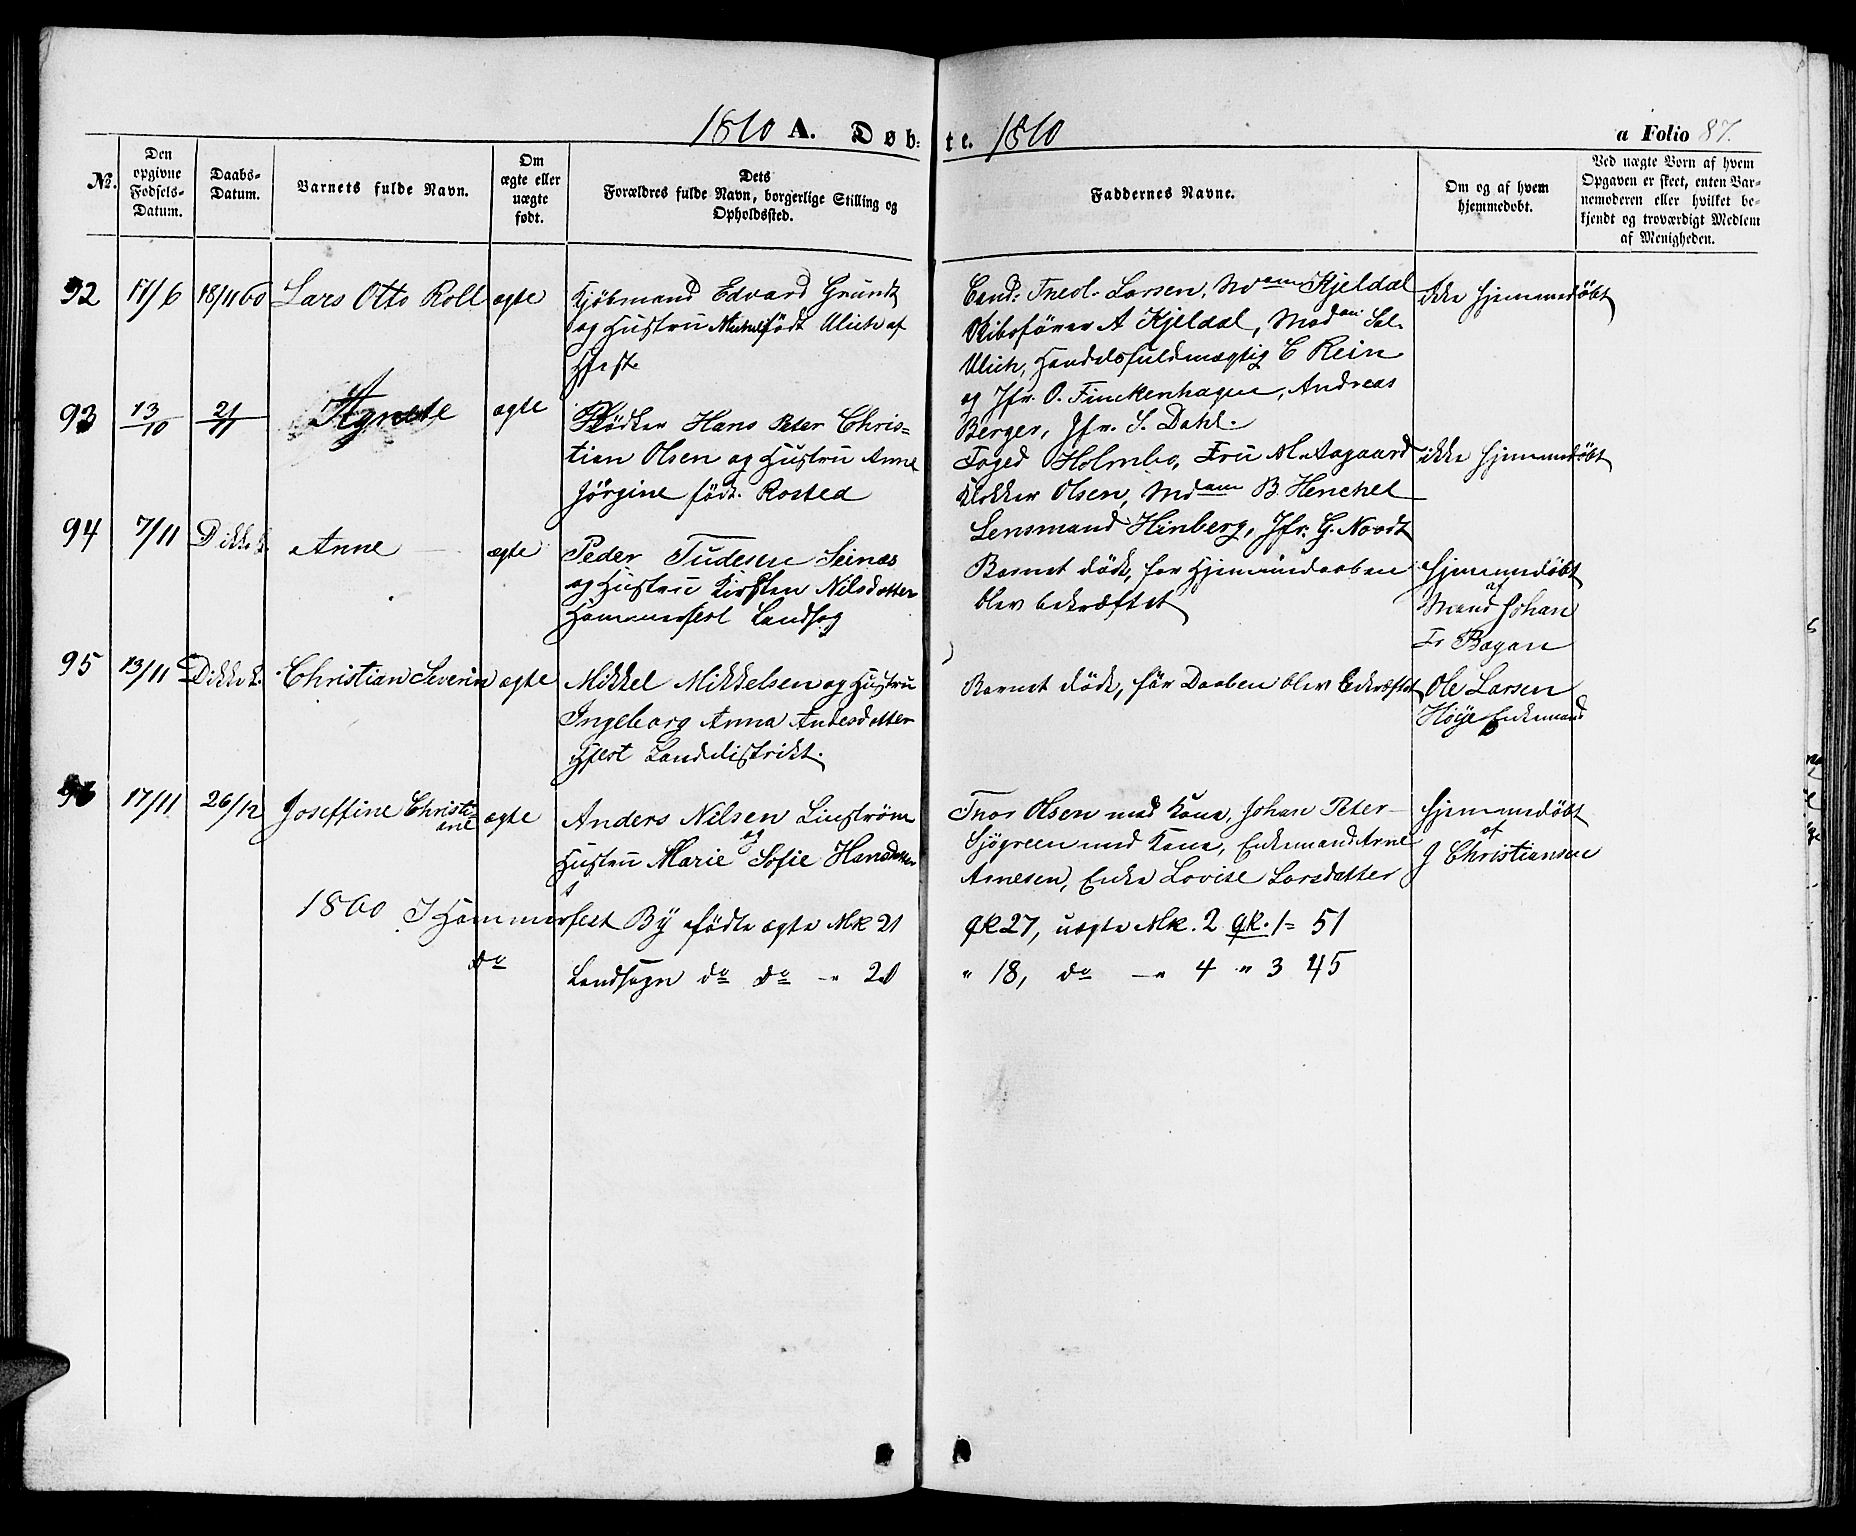 1860 A. Døb-
te. 1860
a Folio 87.
No.
Den opgivne Fødsels-Datum.
Daabs-Datum.
Barnets fulde Navn.
Om ægte eller uægte født.
Dets Forældres fulde Navn, borgerlige Stilling og Opholdssted.
Faddernes Navne.
Om og af hvem hjemmedøbt.
Ved uægte Born af hvem Opgaven er skeet, enten Barnemoderen eller hvilket bekjendt og troværdigt Medlem af Menigheden.
92 17/6 18/11 60 Lars Otto Roll ægte Kjöbmand Edvard Grundt
og Hustru født Ulich af
Hfest.
Cand: Theol. Larsen, Mdam Kjeldal
Skibsförer A Kjeldal, Madam Sal.
Ulich, Handelsfuldmægtig C Rein
og Jfr. O. Finckenhagen, Andreas
Berger, Jfr. S. Dahl.
ikke hjemmedöbt
93 13/10 21/11 Agnete ægte Bödker Hans Peter Chris=
tian Olsen og Hustru Anne
Jörgine föd. Rosted
Foged Holmbo, Fru M. Aagaard
Klokker Olsen, Mdam B Henchel
Lensmand Hinberg, Jfr. G. Noodt
ikke hjemmedöbt
94 7/11 D ikke b. Anne ægte Peder Tudesen Seinæs
og Hustru Kirsten Nilsdatter
Hammerfest Landsog
Barnet döde, før Hjemmedaaben
blev bekræftet
hjemmedöbt
af
Mand Johan
Fr Bagan
95 13/11 D ikke b. Christian Severin ægte Mikkel Mikkelsen og Hustru
Ingeborg Anna Andersdatter
Hfest Landdistrikt.
Barnet döde, för Daaben blev bekræftet
Ole Larsen
Höge Enkemand
96 17/11 26/12 Joseffine Christi=
ane ægte Anders Nilsen Linström
og
Hustru Marie Sofie Hansdatter
Thor Olsen med Kone, Johan Peter
Sjögreen med Kone, Enkemand Arne
Arnesen, Enke Lovise Larsdatter
hjemmedöbt
af
J Christiansen
1860 I Hammerfest By födte ægte Mk 21
qk 27, uægte Mk. 2 qk. 1= 51
do Landsogn do do -"- 20
" 18, do -"- 4 " 3 45